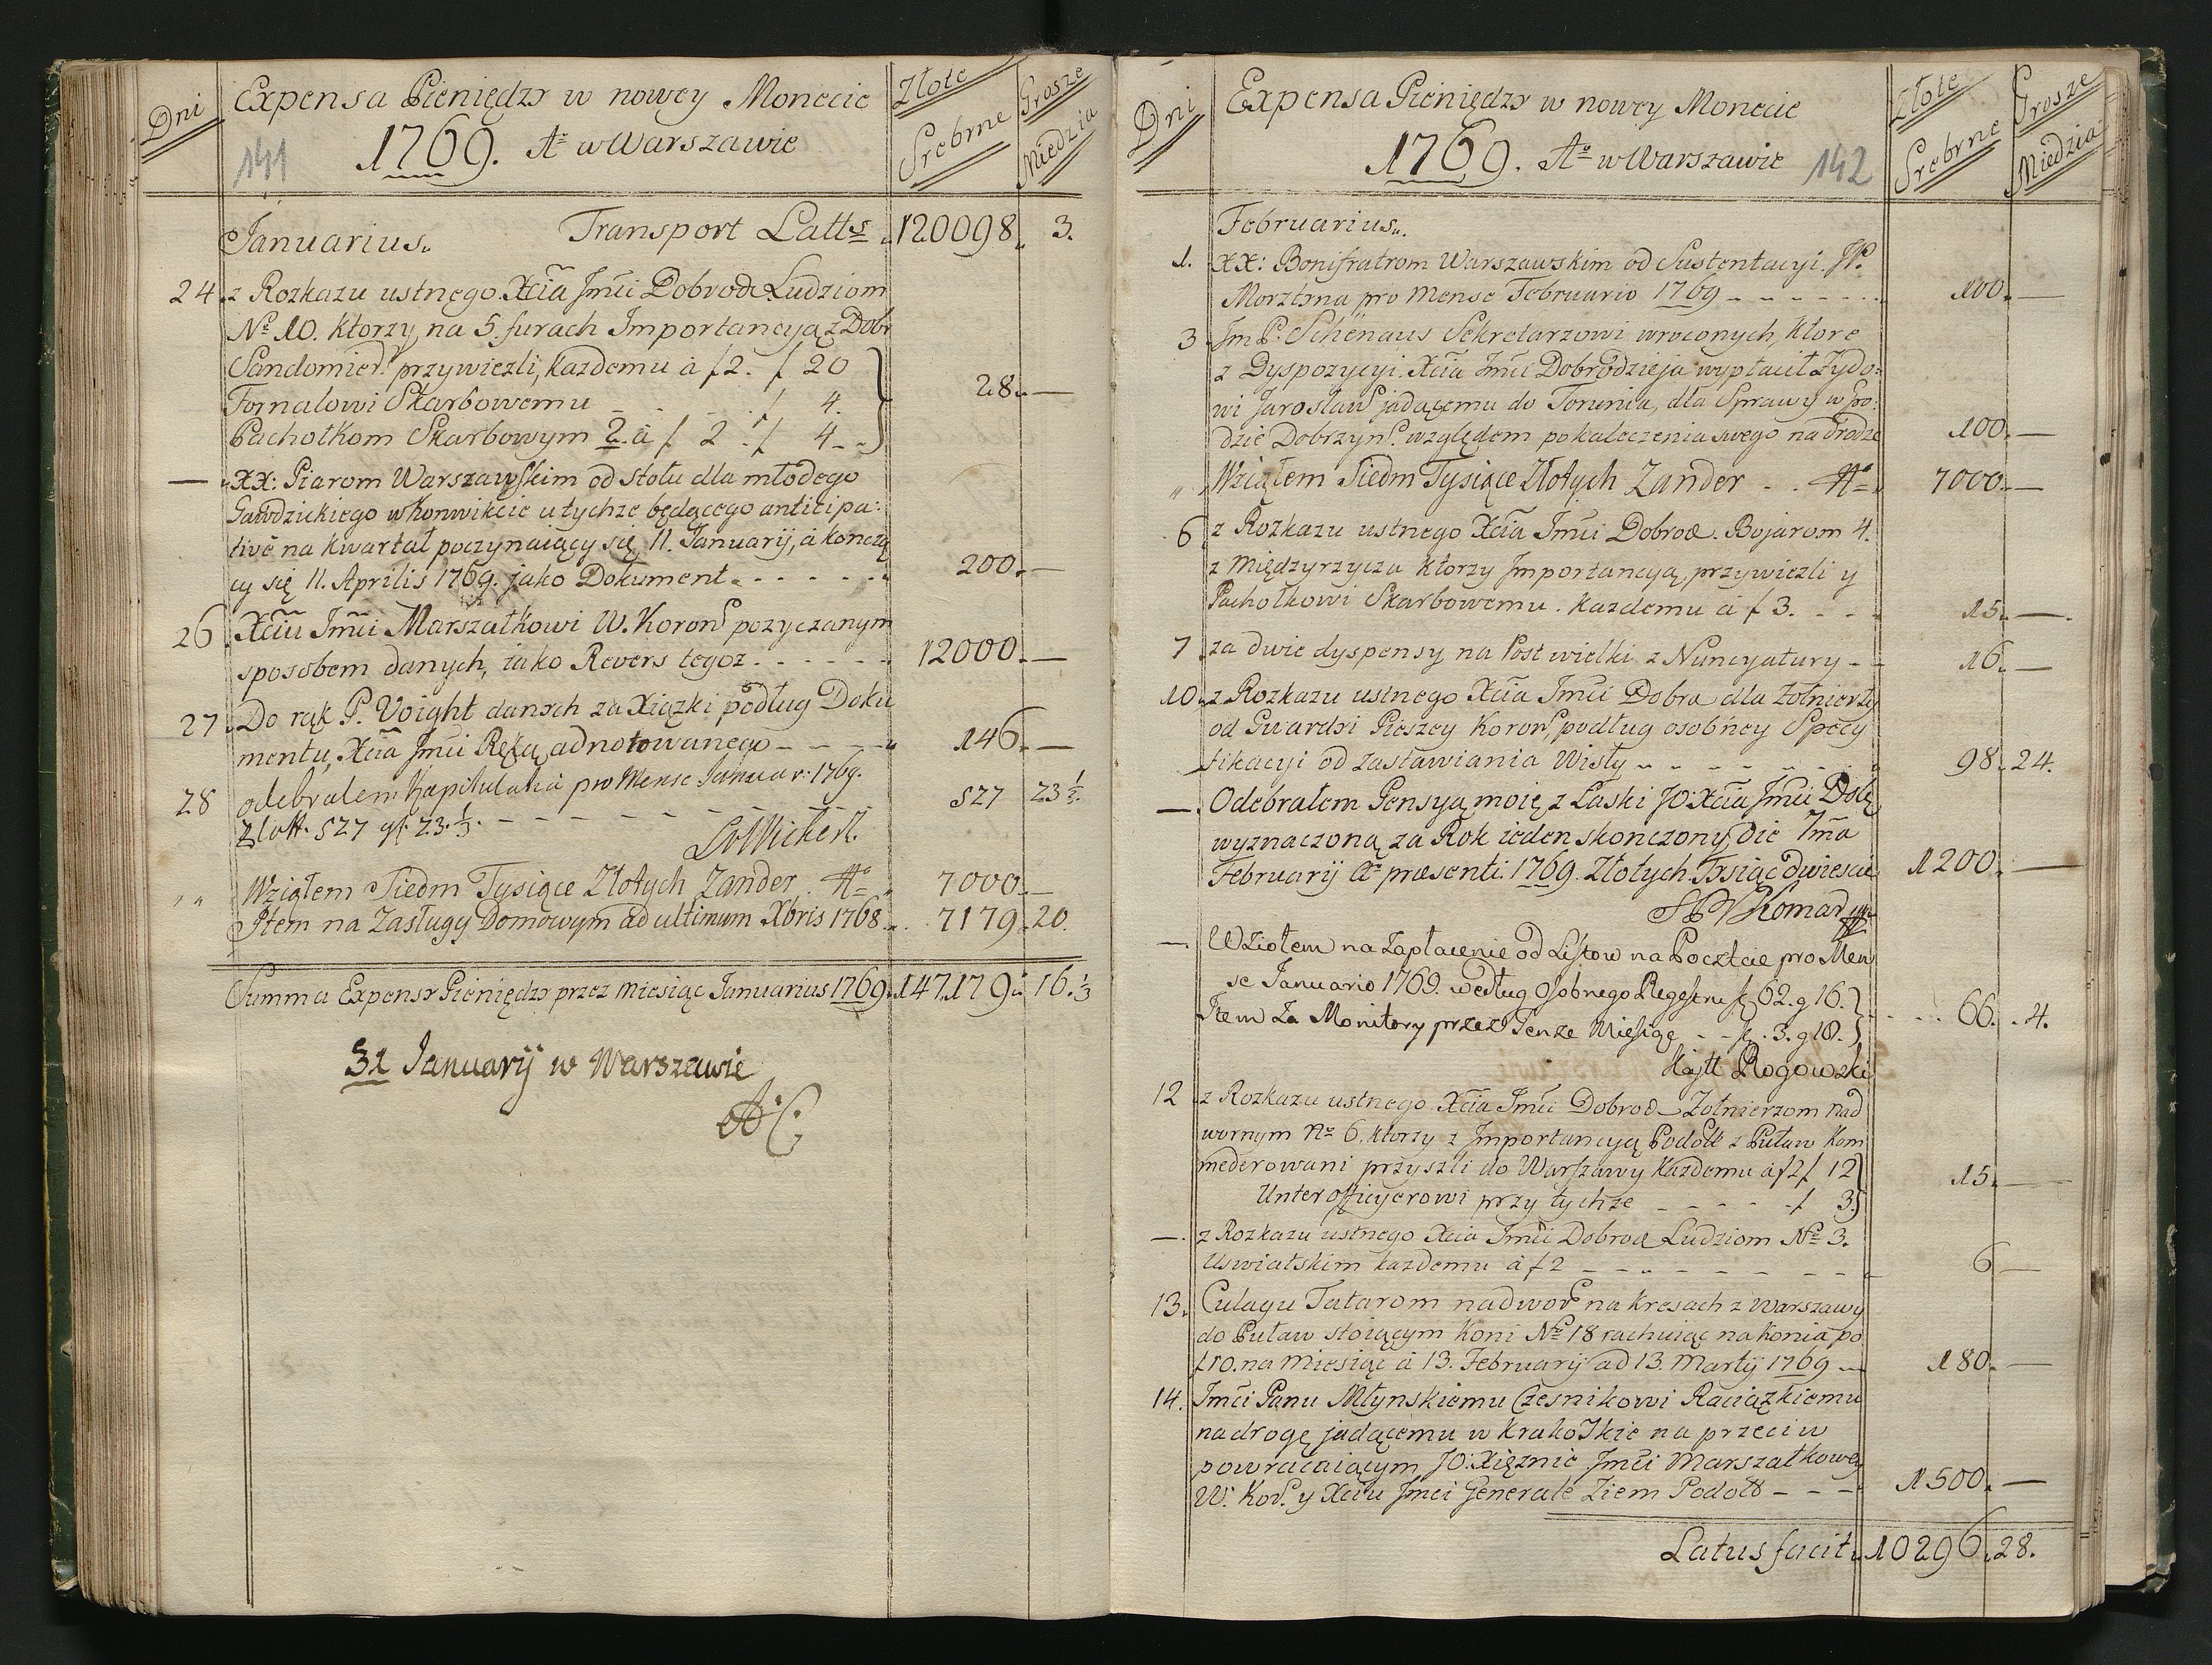 Dni
Expensa Pieniędzy w nowey Monecie
1769. Ao w Warszawie
141
Złote
Srebrne
Grosze
Miedzią
Januarius.
Transport Latts 120098. 3.
24. z Rozkazu ustnego Xcia Jmci Dobrode Ludziom
No 10. ktorzy na 5. furach Importancyą z Dobr
Sandomier. przywiezli, każdemu à f 2. f 20
Fornalowi Skarbowemu - - - f 4. 28. —
Pachołkom Skarbowym 2. à f 2. f 4. -
— XX: Piarom Warszawskim od stołu dla młodego
Gawdzickiego w Konwikcie u tychże będącego anticipa:
tivè na kwartał poczynaiący się 11. Januarij, à kończą
cy się 11. Aprilis 1769. jako Dokument. - - - - - 200. —
26 Xciu Jmci Marszałkowi W. Koron pozyczanym
sposobem danych, iako Revers tegoż. - - - - - 12000. —
27. Do rąk P. Voight danych za Xiązki podług Doku
mentu, Xcia Jmci Ręką adnotowanego - - - - 146. —
28 odebrałem Kapitulatia pro Mense Januar: 1769.
Zlott. 527 gl. 23. 1/3. - - - - - - - - 527 23 1/3.
„ „ Wziąłem Siedm Tysiące Złotych Zander. 7000. —
Item na Zasługi Domowym ad ultimum Xbris 1768. 7179. 20.
Summa Expensy Pieniędzy przez Miesiąc Januarius 1769. 147.179. 16. 1/3
31 Januarij w Warszawie
Dni
Expensa Pieniędzy w nowey Monecie
1769. Ao w Warszawie
142
Złote
Srebrne
Grosze
Miedzią
Februarius.
1. XX: Bonifratrom Warszawskim od Sustentacyi JP.
Morztyna pro Mense Februario 1769 - - - - - 100. —
3 Jm P: Schënaus Sekretarzowi wroconych, ktore
z Dyspozycyi Xcia Jmci Dobrodzieja wypłacił Żydo:
wi Jarosław jadącemu do Torunia, dla Sprawy w Gro:
dzie Dobrzyn. względem pokaleczenia swego na drodze 100. —
„ Wziąłem Siedm Tysiące Złotych Zander - - 7000. —
6 z Rozkazu ustnego Xcia Jmci Dobrod. Bojarom 4.
z Międzyrzycza ktorzy Importancyą przywiezli y
Pachołkowi Skarbowemu. każdemu à f 3. - - - 15. —
7 za dwie dyspensy na Post wielki z Nuncyatury - - 16. —
10. z Rozkazu ustnego Xcia Jmci Dobra dla żołnierzy
od Gwardyi Pieszey Koron, podług osobney Specy
fikacyi od zastawiania Wisły - - - - - - - 98. 24.
— Odebrałem Pensyą moię z Łaski JO: Xcia Jmci Dobę
wyznaczoną za Rok ieden skonczony, die 7ma
February Ao præsenti 1769. Złotych Tysiąc dwiescie 1200. —
Komar
— Wziołem na Zapłacenie od Listow na Poczcie pro Men
se Januario 1769. według Osobnego Regestru f. 62. g 16.
Item Za Monitory przez Tenże Miesiąc - - f. 3. g 18. - - 66. 4.
Kajtt Rogowski
12 z Rozkazu ustnego Xcia Jmci Dobrod. Żołnierzom nad
wornym No 6. ktorzy z Importancyą Podolt z Puław kom
menderowani przyszli do Warszawy każdemu à f 2 f 12
Unterofficyerowi przy tychże - - - - - f 3. 15. —
— z Rozkazu ustnego Xcia Jmci Dobrod Ludziom No 3.
Uswiatskim każdemu à f 2 - - - - - - - - 6 —
13. Culagu Tatarom nadwor. na kresach z Warszawy
do Puław stoiącym Koni No 18 rachuiąc na konia po
f 10. na miesiąc à 13. February ad 13. Martij 1769 - 180. —
14. Jmci Panu Młynskiemu Czesnikowi Raciązkiemu
na drogę jadącemu w Krakoskie na przeciw
powracaiącym JO: Xiężnie Jmci Marszałkowey
W. Kor. y Xciu Jmci Generale Ziem Podolt - - - 1500. —
Latus facit. 10296. 28.